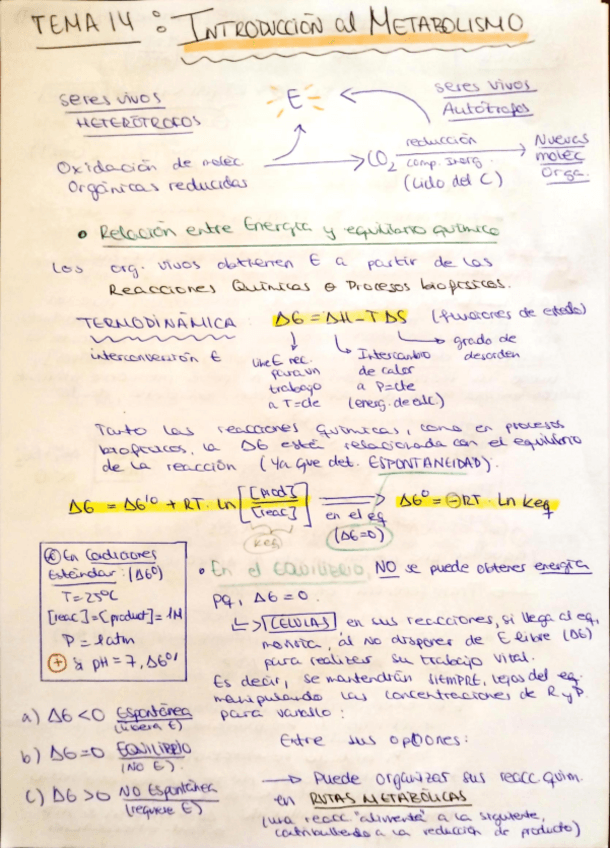 TEMA 14 : INTRODUCCIÓN al METABOLISMO
seres vivos
HETERÓTROFOS
E
seres vivos
Autótrofos
Oxidación de moléc
Orgánicas reducidas
CO2
reducción
comp. Inorg.
(Ciclo del C)
Nuevas
moléc
Orga.
• Relación entre Energía y equilibrio químico
Los org. vivos obtienen E a partir de las
Reacciones Químicas o Procesos biofísicos.
TERMODINÁMICA
interconversión E
ΔG = ΔH - TΔS (funciones de estado)
E rec.
para un
trabajo
a T=cte
Intercambio
de calor
a P=cte
(energ. de enlc)
grado de
desorden
Tanto las reacciones químicas, como en procesos
biofísicos, la ΔG está relacionada con el equilibrio
de la reacción (Ya que det. ESPONTANEIDAD).
ΔG = ΔG'º + RT · Ln [[prod]/[reac]]
en el eq
(ΔG=0)
ΔGº = -RT · Ln Keq
Keq
* En Condiciones
Estándar : (ΔGº)
T = 25ºC
[reac] = [product] = 1M
P = 1atm
+ Si pH = 7, ΔGº'
• En el EQUILIBRIO, NO se puede obtener energía
pq, ΔG = 0.
CÉLULAS en sus reacciones, si llega al eq,
moriría, al no disponer de E libre (ΔG)
para realizar su trabajo vital.
Es decir, se mantendrán SIEMPRE, lejos del eq.
manipulando las concentraciones de R y P
para variarlo :
a) ΔG < 0 Espontánea
(libera E)
b) ΔG = 0 EQUILIBRIO
(NO E).
c) ΔG > 0 NO Espontánea
(requiere E)
Entre sus opciones:
→ Puede organizar sus reacc. quím.
en RUTAS METABÓLICAS
(una reacc "alimenta" a la siguiente,
contribuyendo a la reducción de producto)